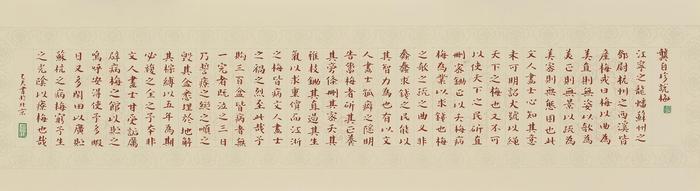 龔自珍說梅
江寧之龍蟠蘇州之
鄧尉杭州之西溪皆
產梅或曰梅以曲為
美直則無姿以欹為
美正則無景以疏為
美密則無態固也此
文人畫士心知其意
未可明詔大號以繩
天下之梅也又不可
以使天下之民斫直
刪密鋤正以夭梅病
梅為業以求錢也梅
之欹之疏之曲又非
蠢蠢求錢之民能以
其智力為也有以文
人畫士孤癖之隱明
告鬻梅者斫其正養
其旁條刪其密夭其
稚枝鋤其直遏其生
氣以求重價而江浙
之梅皆病文人畫士
之禍之烈至此哉予
購三百盆皆病者無
一完者既泣之三日
乃誓療之縱之順之
毀其盆悉埋於地解
其棕縛以五年為期
必複之全之予本非
文人畫士甘受詬厲
闢病梅之館以貯之
嗚呼安得使予多暇
日又多閒田以廣貯
蘇杭之病梅窮予生
之光陰以療梅也哉
書於北京